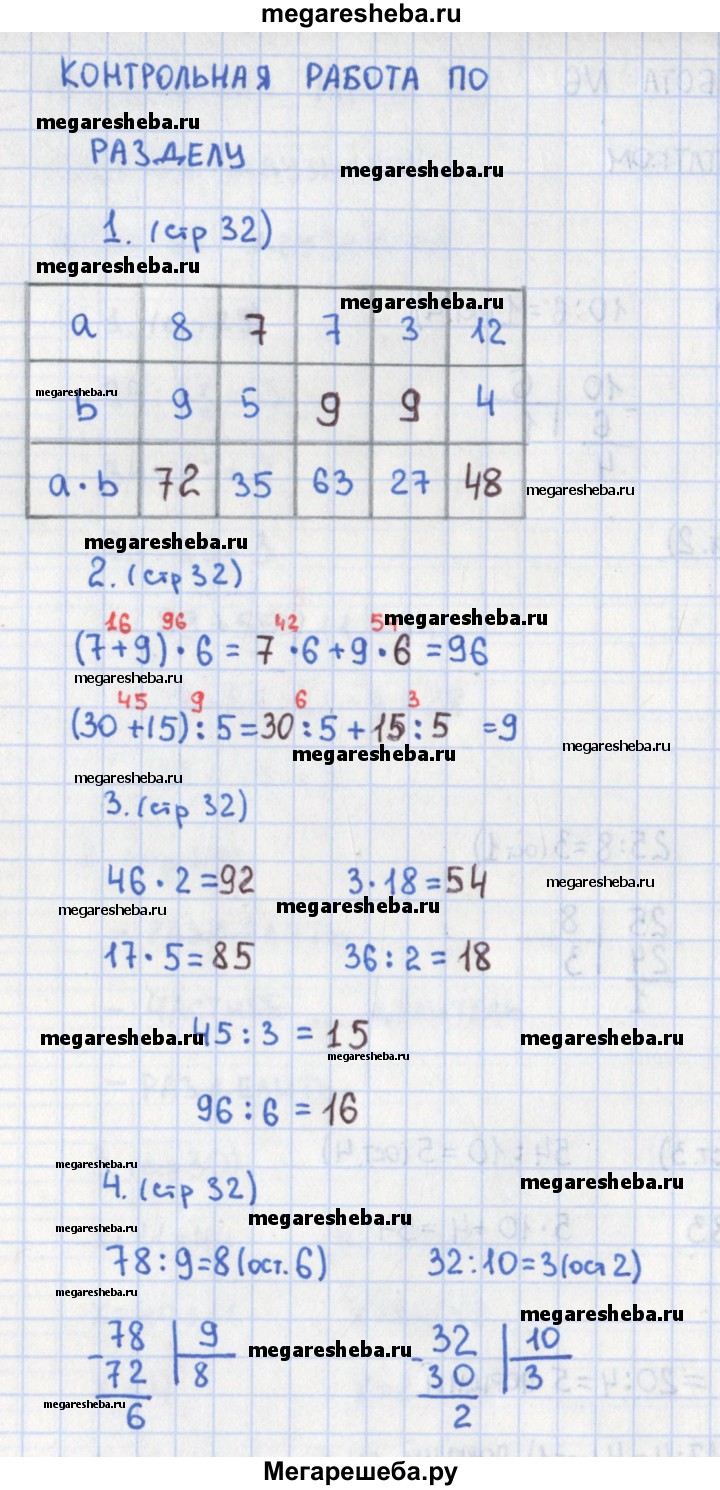 megaresheba.ru
КОНТРОЛЬНАЯ РАБОТА ПО
megaresheba.ru
РАЗДЕЛУ
megaresheba.ru
1. (стр 32)
megaresheba.ru
megaresheba.ru
a 8 7 7 3 12
megaresheba.ru
b 9 5 9 9 4
a · b 72 35 63 27 48
megaresheba.ru
megaresheba.ru
2. (стр 32)
16 96 42 54
megaresheba.ru
(7+9) · 6 = 7 · 6 + 9 · 6 = 96
megaresheba.ru
45 9 6 3
(30+15) : 5 = 30 : 5 + 15 : 5 = 9
megaresheba.ru
megaresheba.ru
megaresheba.ru
3. (стр 32)
46 · 2 = 92 3 · 18 = 54
megaresheba.ru
megaresheba.ru
megaresheba.ru
17 · 5 = 85 36 : 2 = 18
megaresheba.ru
45 : 3 = 15
megaresheba.ru
megaresheba.ru
96 : 6 = 16
megaresheba.ru
4. (стр 32)
megaresheba.ru
megaresheba.ru
megaresheba.ru
78 : 9 = 8 (ост. 6) 32 : 10 = 3 (ост 2)
megaresheba.ru
megaresheba.ru
- 78 | 9 - 32 | 10
megaresheba.ru
72 | 8 30 | 3
megaresheba.ru
megaresheba.ru
6 2
Мегарешеба.ру